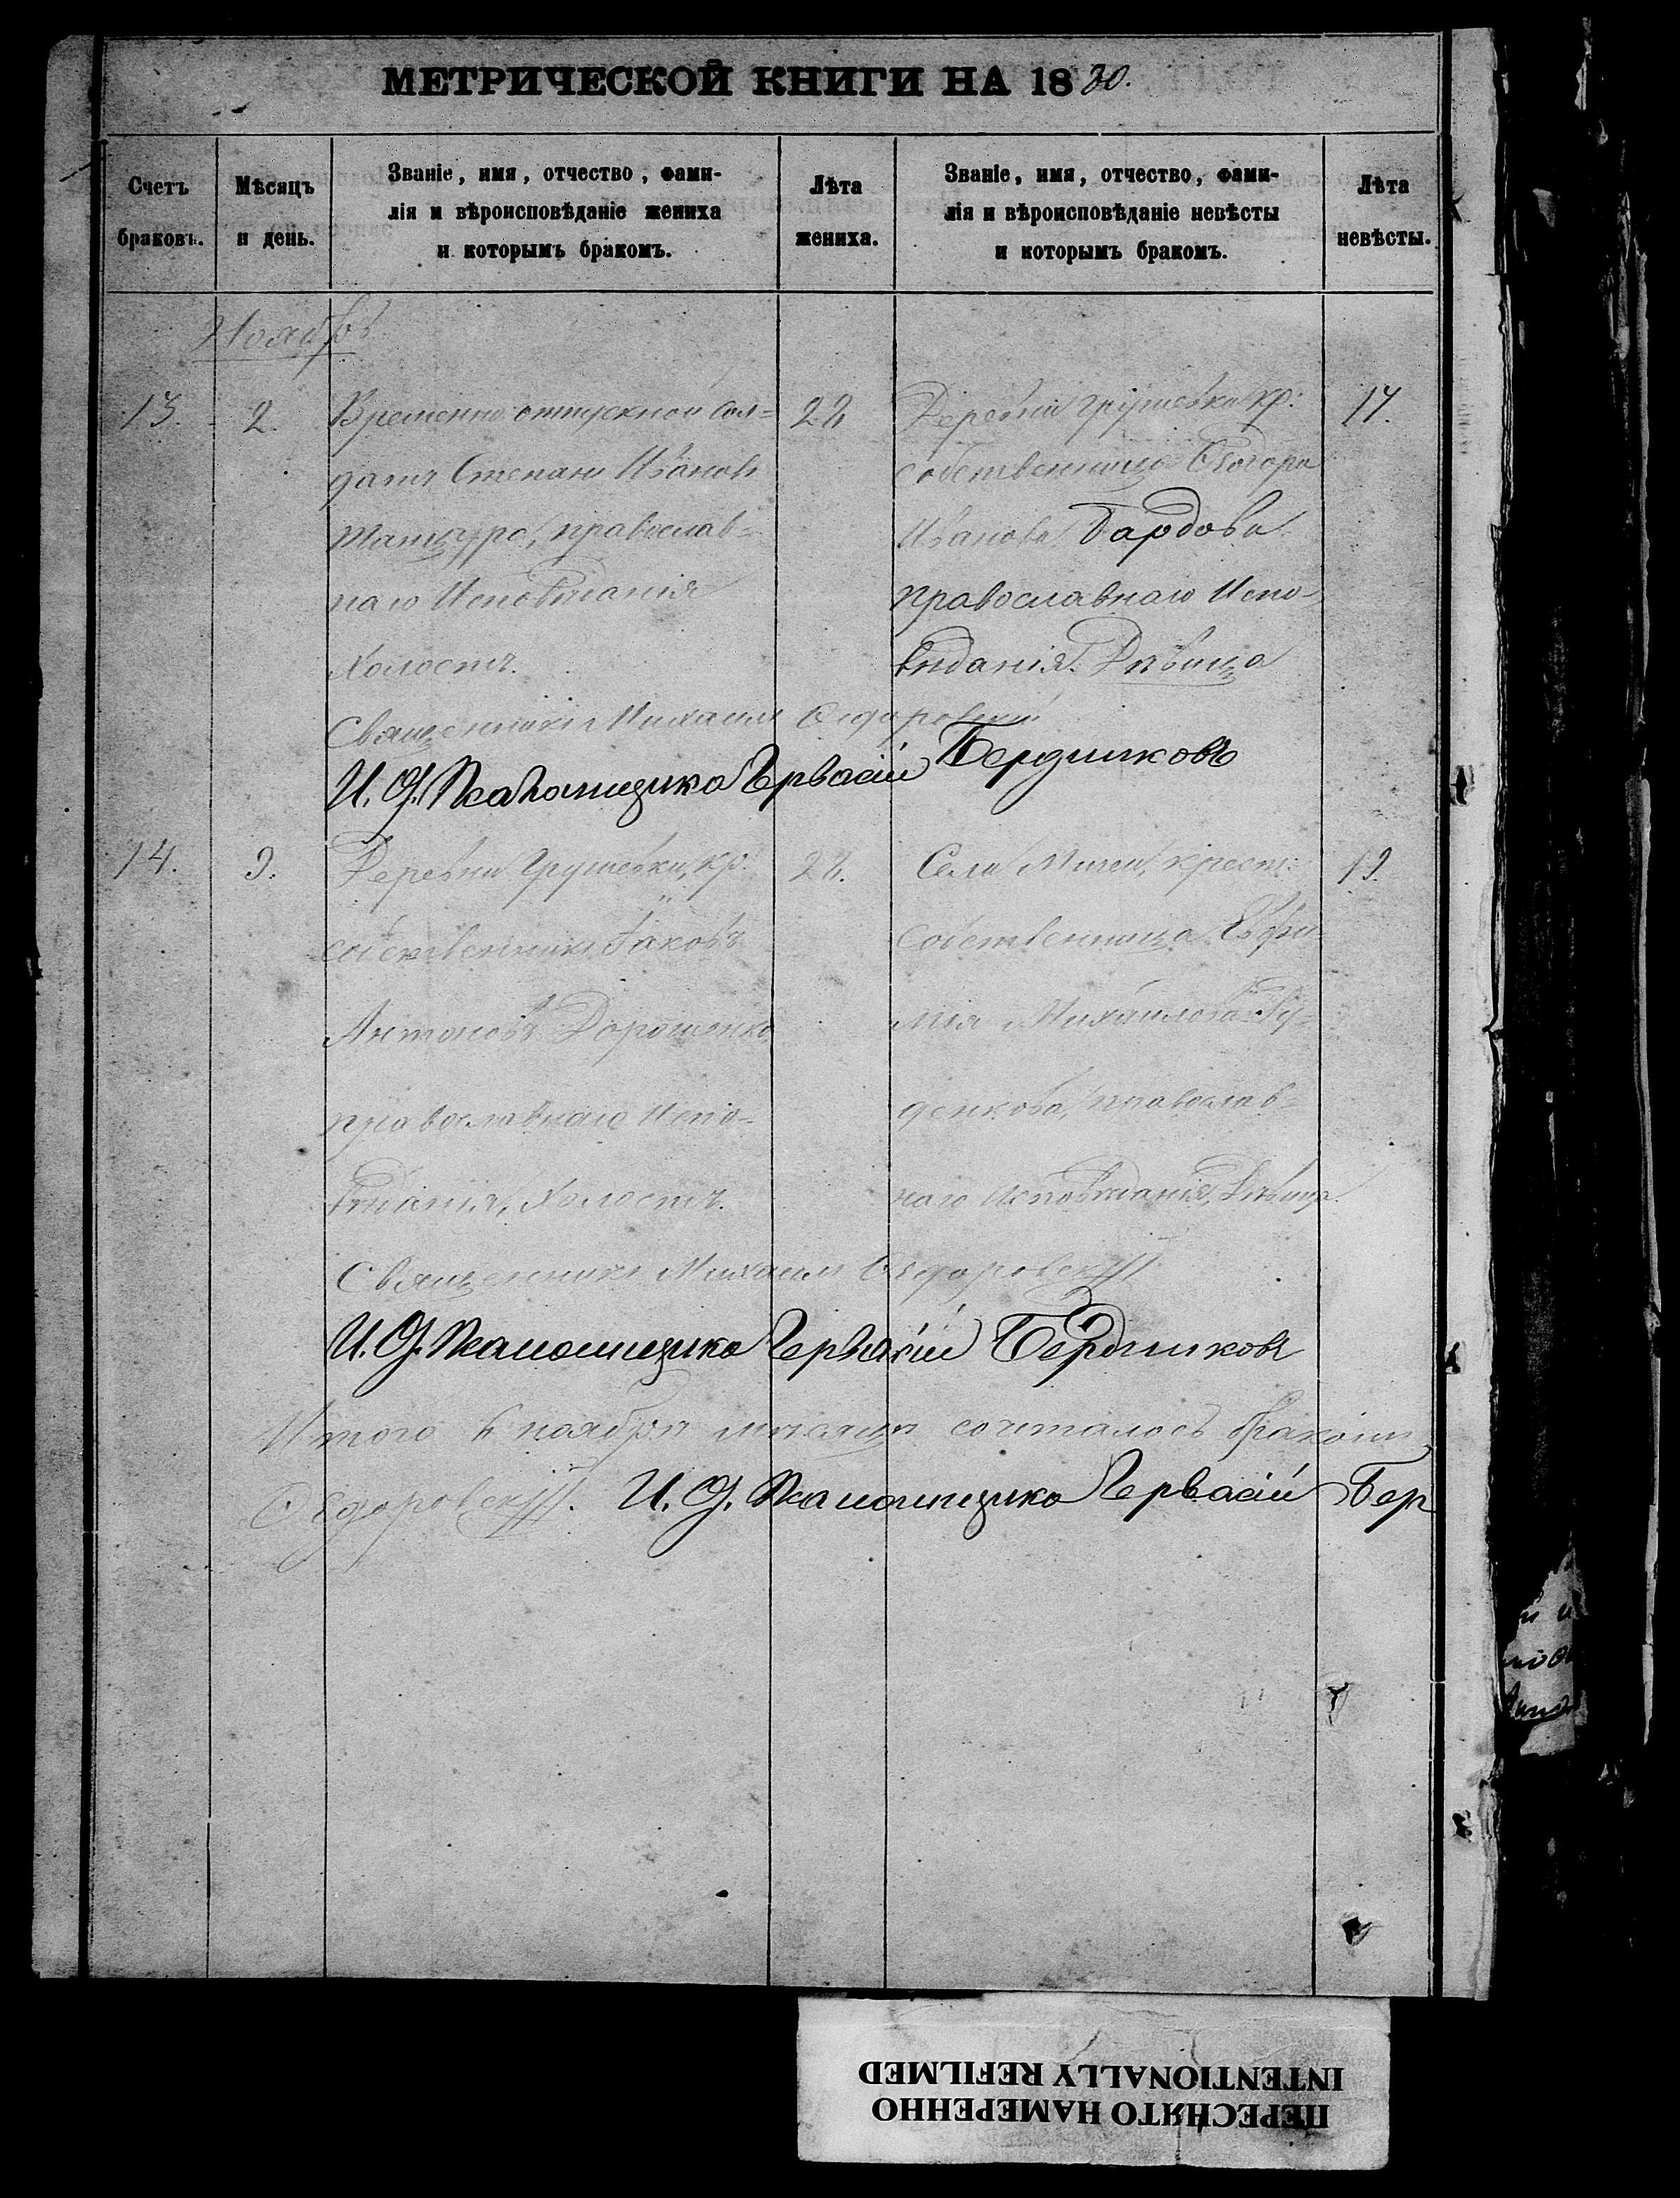 МЕТРИЧЕСКОЙ КНИГИ НА 1880.
Счетъ браковъ.
Мѣсяцъ и день.
Званіе, имя, отчество, фами-
лія и вѣроисповѣданіе жениха
и которымъ бракомъ.
Лѣта жениха.
Званіе, имя, отчество, фами-
лія и вѣроисповѣданіе невѣсты
и которымъ бракомъ.
Лѣта невѣсты.
Ноябрь
13.
2.
Временно отпускной сол-
датъ Степанъ Ивановъ
православ-
наго Исповѣданія
Холостъ.
Деревни Грушевки кр:
собственница Ѳеодора
Иванова Бардова
православнаго Испо-
вѣданія. Дѣвица
17.
Священникъ Михаилъ Ѳедоровскій
И. д. Псаломщика Герасій Бердниковъ
14.
9.
Деревни Грушевки, кр.
собственникъ Іаковъ
Антоновъ Дорошенко
православнаго Испо-
вѣданія, Холостъ.
Села Мигеи, крест:
собственница Евфи-
мія Михайлова
денкова, православ-
наго Исповѣданія, Дѣвица.
19.
Священникъ Михаилъ Ѳедоровскій
И. д. Псаломщика Герасій Бердниковъ
Итого въ ноябрѣ мѣсяцѣ сочеталось бракомъ
Ѳедоровскій. И. д. Псаломщика Герасій Бер
ПЕРЕСНЯТО НАМЕРЕННО
INTENTIONALLY REFILMED